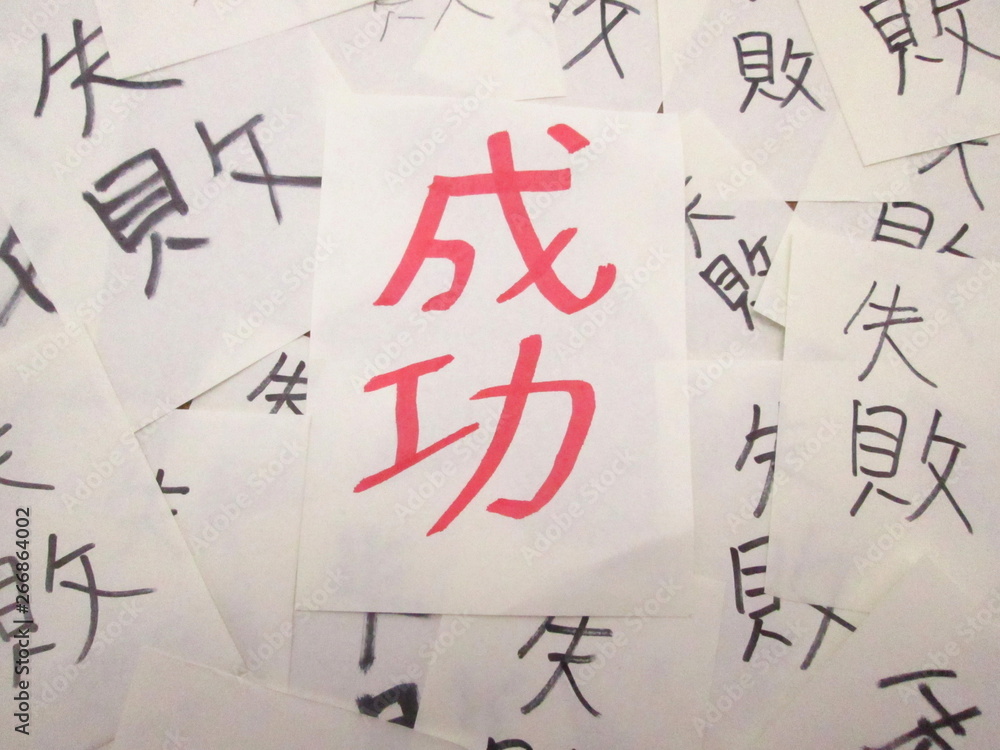 成功
失敗
敗
失敗
敗
失敗
失
敗
失
Adobe Stock | #266864002